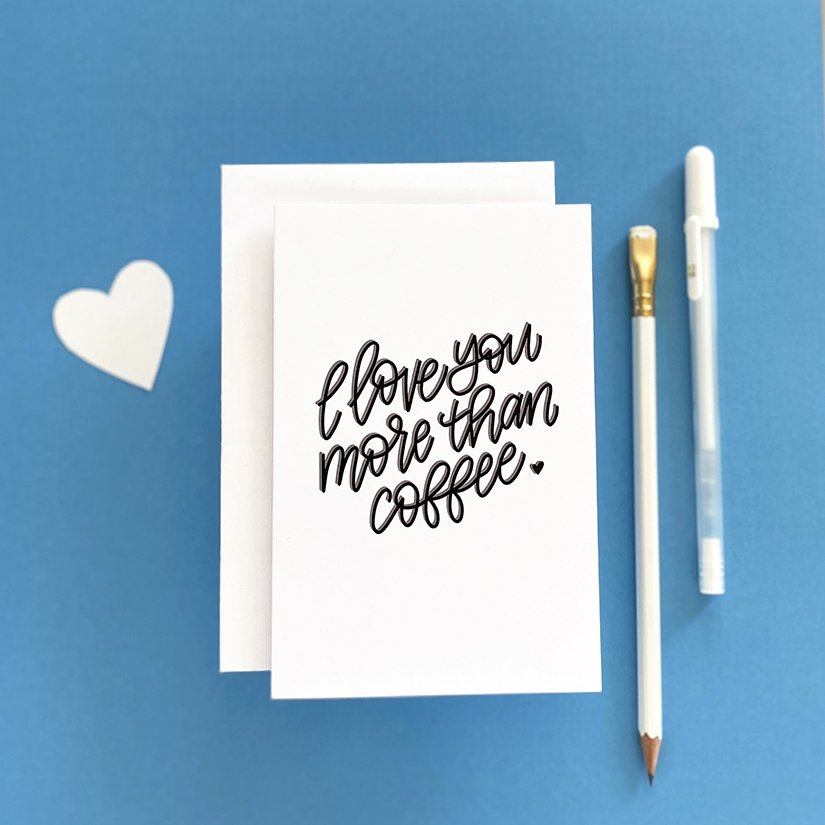 I love you
more than
coffee.